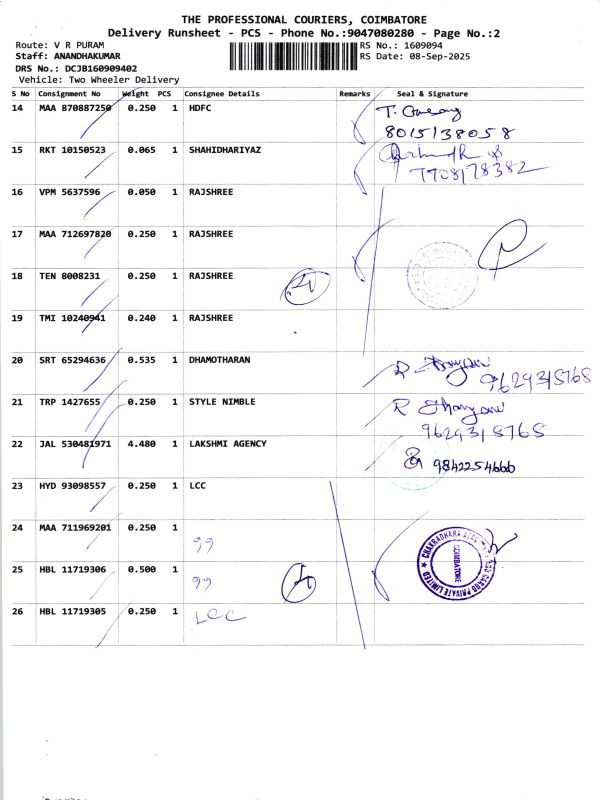 THE PROFESSIONAL COURIERS, COIMBATORE
Delivery Runsheet - PCS - Phone No.:9047080280 - Page No.:2
Route: V R PURAM
RS No.: 1609094
Staff: ANANDHAKUMAR
RS Date: 08-Sep-2025
DRS No.: DCJB160909402
Vehicle: Two Wheeler Delivery
S No Consignment No Weight PCS Consignee Details Remarks Seal & Signature
14 MAA 870887250 0.250 1 HDFC
8015138058
15 RKT 10150523 0.065 1 SHAHIDHARIYAZ
7708178382
16 VPM 5637596 0.050 1 RAJSHREE
17 MAA 712697820 0.250 1 RAJSHREE
18 TEN 8008231 0.250 1 RAJSHREE
19 TMI 10240941 0.240 1 RAJSHREE
20 SRT 65294636 0.535 1 DHAMOTHARAN
9629315768
21 TRP 1427655 0.250 1 STYLE NIMBLE
9629315765
22 JAL 530481971 4.480 1 LAKSHMI AGENCY
9842254666
23 HYD 93098557 0.250 1 LCC
24 MAA 711969201 0.250 1
25 HBL 11719306 0.500 1
COIMBATORE
CARGO PRIVATE LIMITED
26 HBL 11719305 0.250 1 LCC